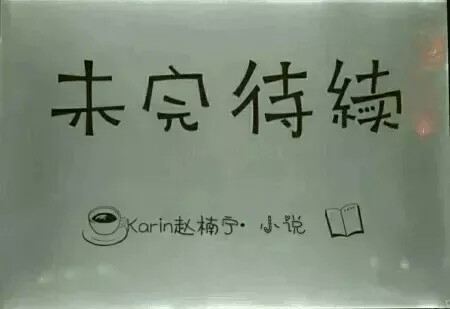 未完待續
Karin赵楠宁·小说